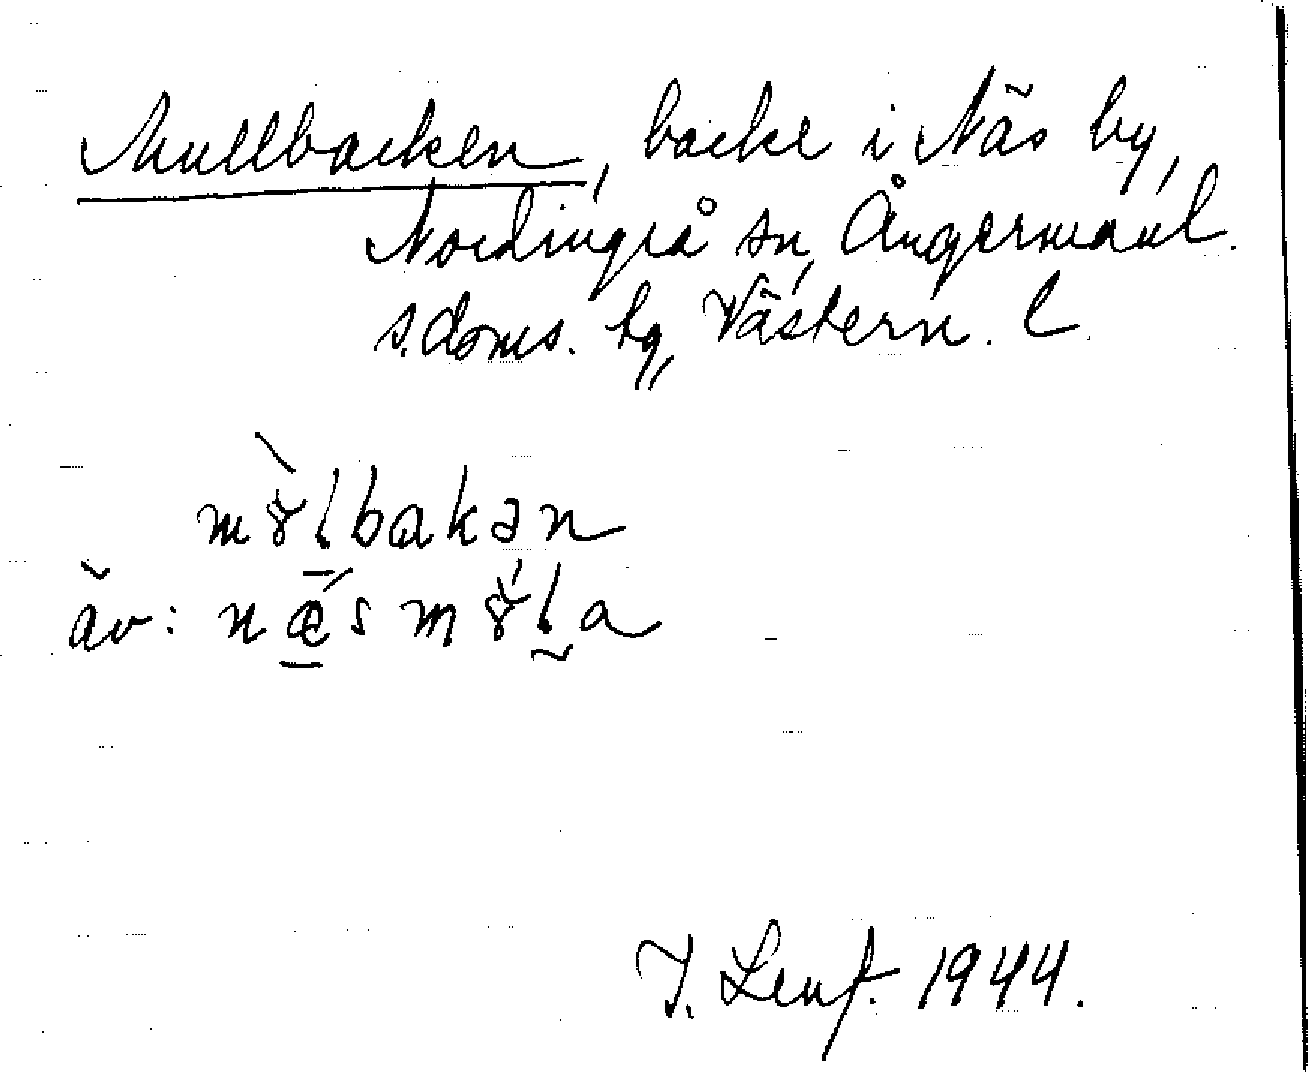 Mullbacken, backe i Näs by,
Nordingrå sn, Ångermanl.
s. doms. hg, Västern. l.
mɤ̀lbakən
äv: nǽ̲s mɤ́l̰a
I. Lenf. 1944.